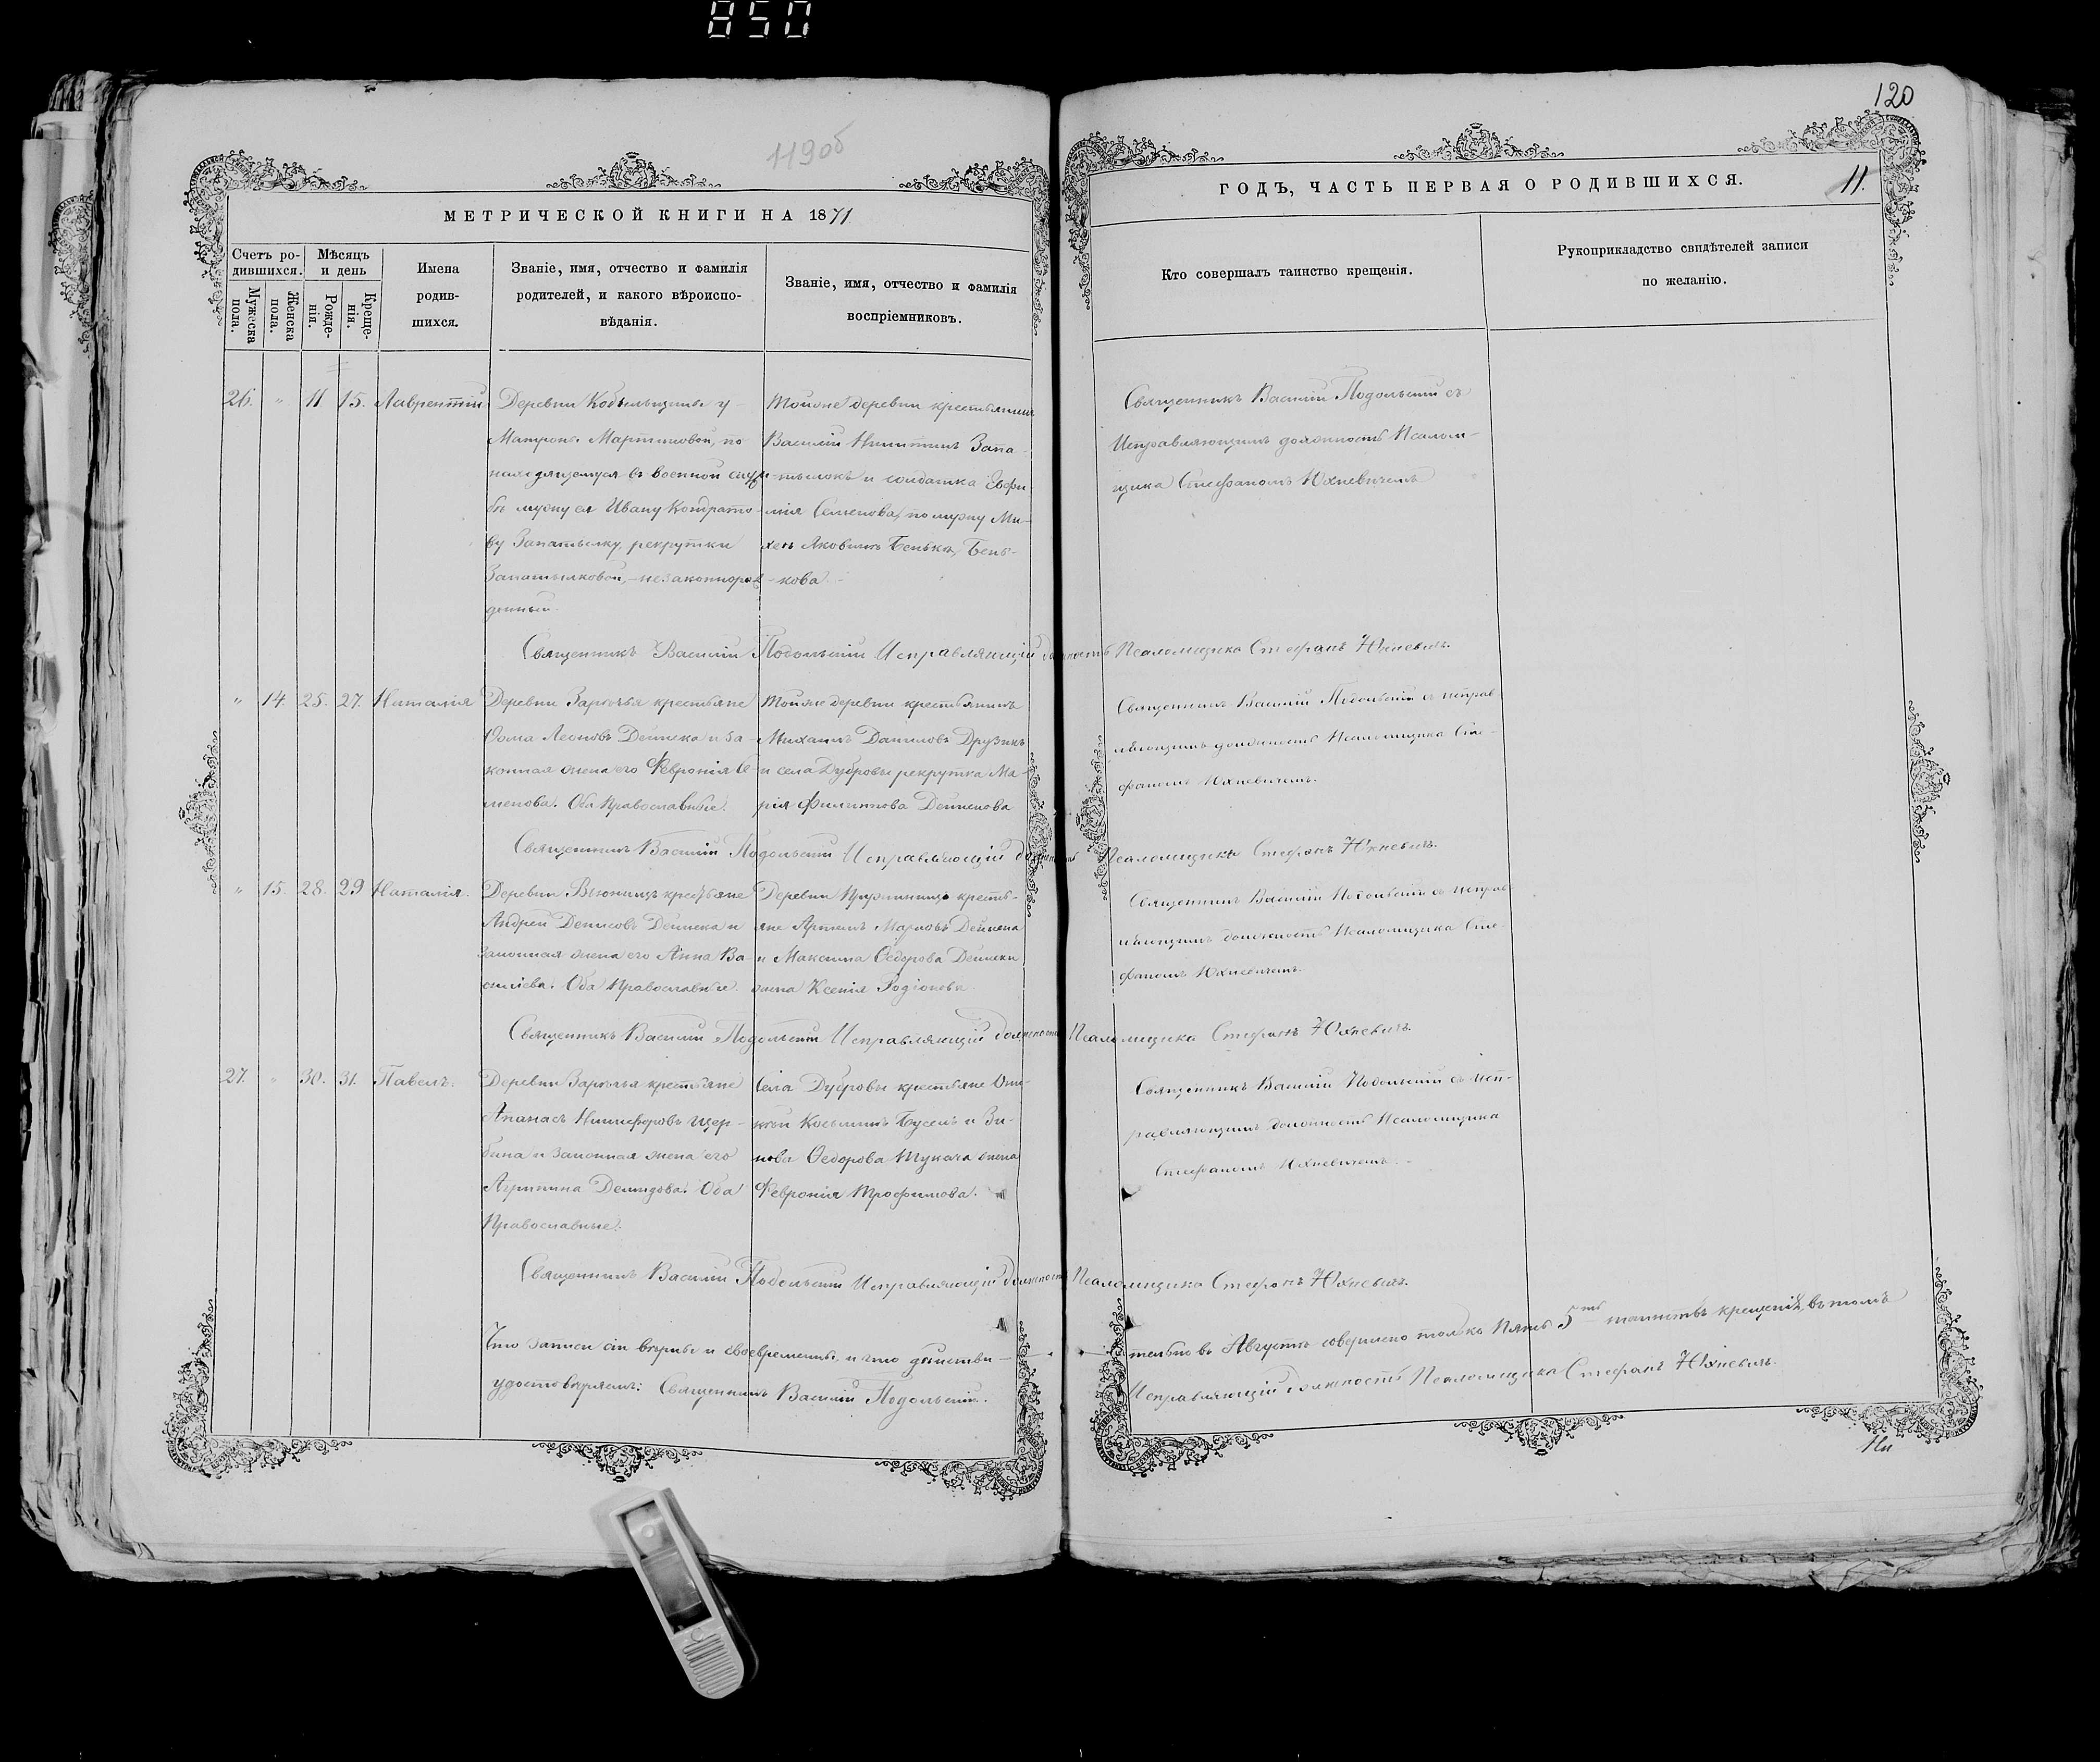 850
120
119об
11.
МЕТРИЧЕСКОЙ КНИГИ НА 1871
ГОДЪ, ЧАСТЬ ПЕРВАЯ О РОДИВШИХСЯ.
Счетъ ро-
дившихся.
Мужеска
пола.
Женска
пола.
Мѣсяцъ
и день
Рожде-
нія.
Креще-
нія.
Имена
родив-
шихся.
Званіе, имя, отчество и фамилія
родителей, и какого вѣроиспо-
вѣданія.
Званіе, имя, отчество и фамилія
воспріемниковъ.
Кто совершалъ таинство крещенія.
Рукоприкладство свидѣтелей записи
по желанію.
26. " 11 15. Лаврентій
Деревни у
Матроны Мартиновой, по
находящемуся въ военной служ-
бѣ мужу ея Ивану Кондрато-
ву Запатылку, рекрутки
Запатылковой, - незаконнорож-
денный.
Тойоже деревни крестьянинъ
Василій Никитинъ Запа-
тылокъ и солдатка Евфи-
мія Семенова, по мужу Ми-
хею Яковлеву Бенькъ, Бень-
кова.
Священникъ Василій Подольскій съ
Исправляющимъ должность Псалом-
щика Стефаномъ Юхневичемъ
Священникъ Василій Подольскій Исправляющій должность Псаломщика Стефанъ Юхневичъ.
" 14. 25. 27. Наталія
Деревни Заречья крестьяне
Фома Леоновъ Дейнека и за-
конная жена его Февронія Се-
менова. Оба Православные.
Тойже деревни крестьянинъ
Михаилъ Даниловъ Друзикъ
и села Дубровы рекрутка Ма-
рія Филиппова Дейнекова
Священникъ Василій Подольскій съ исправ
ляющимъ должность Псаломщика Сте-
фаномъ Юхневичемъ.
Священникъ Василій Подольскій Исправляющій должность Псаломщика Стефанъ Юхневичъ.
" 15. 28. 29 Наталія.
Деревни Вьюнищъ крестьяне
Андрей Денисовъ Дейнека и
законная жена его Анна Ва-
силіева. Оба Православные.
Деревни кресть-
яне Артемъ Марковъ Дейнека
и Максима Ѳедорова Дейнеки
жена Ксенія Родіонова
Священникъ Василій Подольскій съ исправ-
ляющимъ должность Псаломщика Сте-
фаномъ Юхневичемъ.
Священникъ Василій Подольскій Исправляющій должность Псаломщика Стефанъ Юхневичъ.
27. " 30. 31. Павелъ.
Деревни Заречья крестьяне
Апанасъ Никифоровъ Щер-
бина и законная жена его
Агрипина Демидова. Оба
Православные.
Села Дубровы крестьяне
Косьминъ Буселъ и Зи-
нова Ѳедорова Тукача жена
Февронія Трофимова.
Священникъ Василій Подольскій съ исп-
равляющимъ должность Псаломщика
Стефаномъ Юхневичемъ.
Священникъ Василій Подольскій Исправляющій должность Псаломщика Стефанъ Юхневичъ.
Что записи сіи вѣрны и своевременны, и что дѣйстви-
тельно въ Августѣ совершено только пять 5 таинствъ крещенія, въ томъ
удостовѣряемъ: Священникъ Василій Подольскій.
Исправляющій должность Псаломщика Стефанъ Юхневичъ.